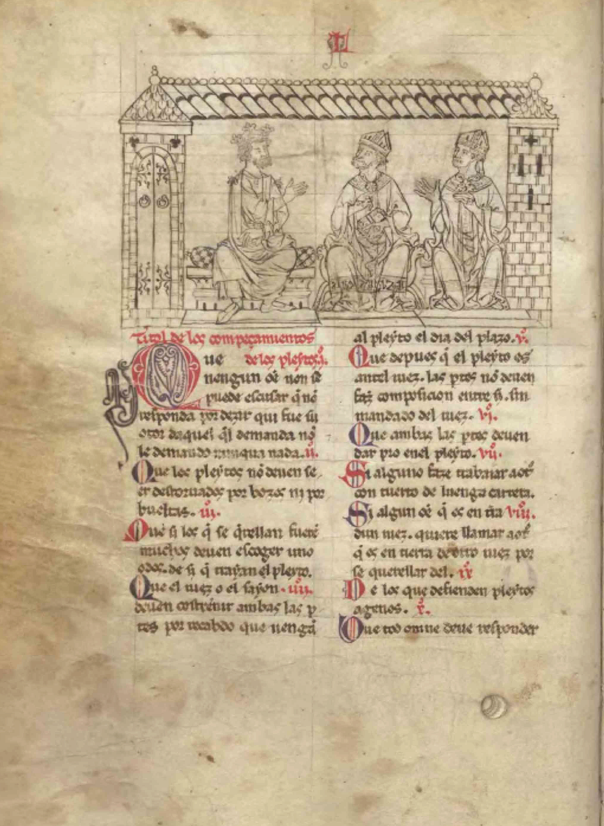 II
Titol de los compeçamientos
Que de los pleytos. i.
nengun oe non se
puede escusar q̃ nõ
responda por dezir qui fue su
otor daquel q̃l demanda nõ
le demando nunqua nada. ii.
Que los pleytos nõ deven se
er destorvados por bozes ni por
bueltas. iii.
Que si los q̃ se q̃rellan fuerẽ
muchos deven escoger uno
o dos. de si q̃ trayan el pleyto.
Que el iuez o el sayon. iiii.
deven costrenir ambas las p
tes por recabdo que vengã
al pleyto el dia del plazo. v.
Que depues q̃ el pleyto es
antel iuez. las ptes nõ deven
fazer composicion entre si. sin
mandado del iuez. vi.
Que ambas las ptes deven
dar pio en el pleyto. vii.
Si alguno faze trabaiar a ot̃
con tuerto de luenga carrera.
Si algun oe q̃ es en tr̃a viii.
dun iuez. quiere llamar a ot̃
q̃ es en tierra de otro iuez por
se querellar del. ix
De los que defienden pleytos
agenos. x.
Que tod omne deve responder